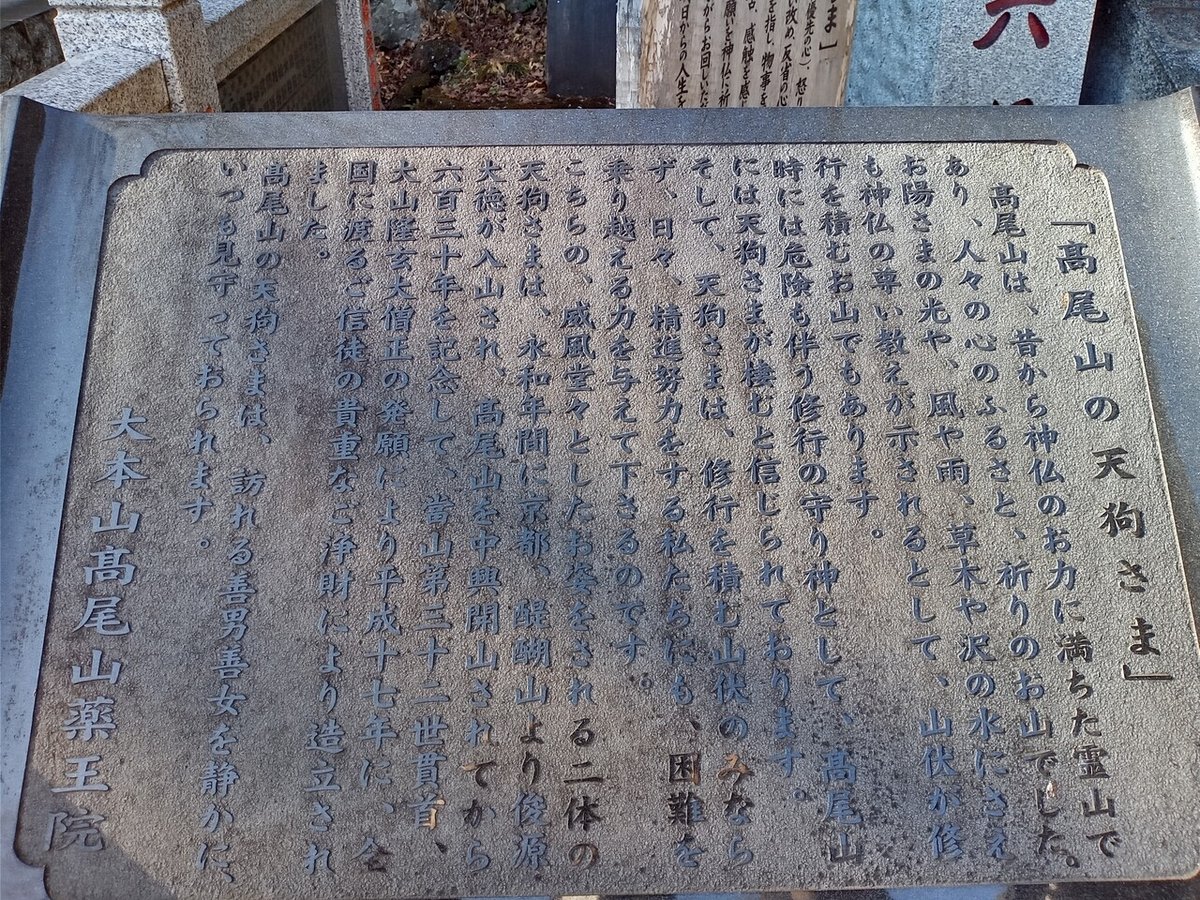 「髙尾山の天狗さま」
髙尾山は、昔から神仏のお力に満ちた霊山で
あり、人々の心のふるさと、祈りのお山でした。
お陽さまの光や、風や雨、草木や沢の水にさえ
も神仏の尊い教えが示されるとして、山伏が修
行を積むお山でもあります。
時には危険も伴う修行の守り神として、髙尾山
には天狗さまが棲むと信じられております。
そして、天狗さまは、修行を積む山伏のみなら
ず、日々、精進努力をする私たちにも、困難を
乗り越える力を与えて下さるのです。
こちらの、威風堂々としたお姿をされる二体の
天狗さまは、永和年間に京都、醍醐山より俊源
大徳が入山され、髙尾山を中興開山されてから
六百三十年を記念して、當山第三十二世貫首、
大山隆玄大僧正の発願により平成十七年に、全
国に渡るご信徒の貴重なご浄財により造立され
ました。
髙尾山の天狗さまは、訪れる善男善女を静かに、
いつも見守っておられます。
大本山髙尾山薬王院
ま」
優先の心)、怒り
い改め、反省の心
を指し、物事を
感触を感じ
願いを神仏に祈
がらお回しいた
日からの人生を
六